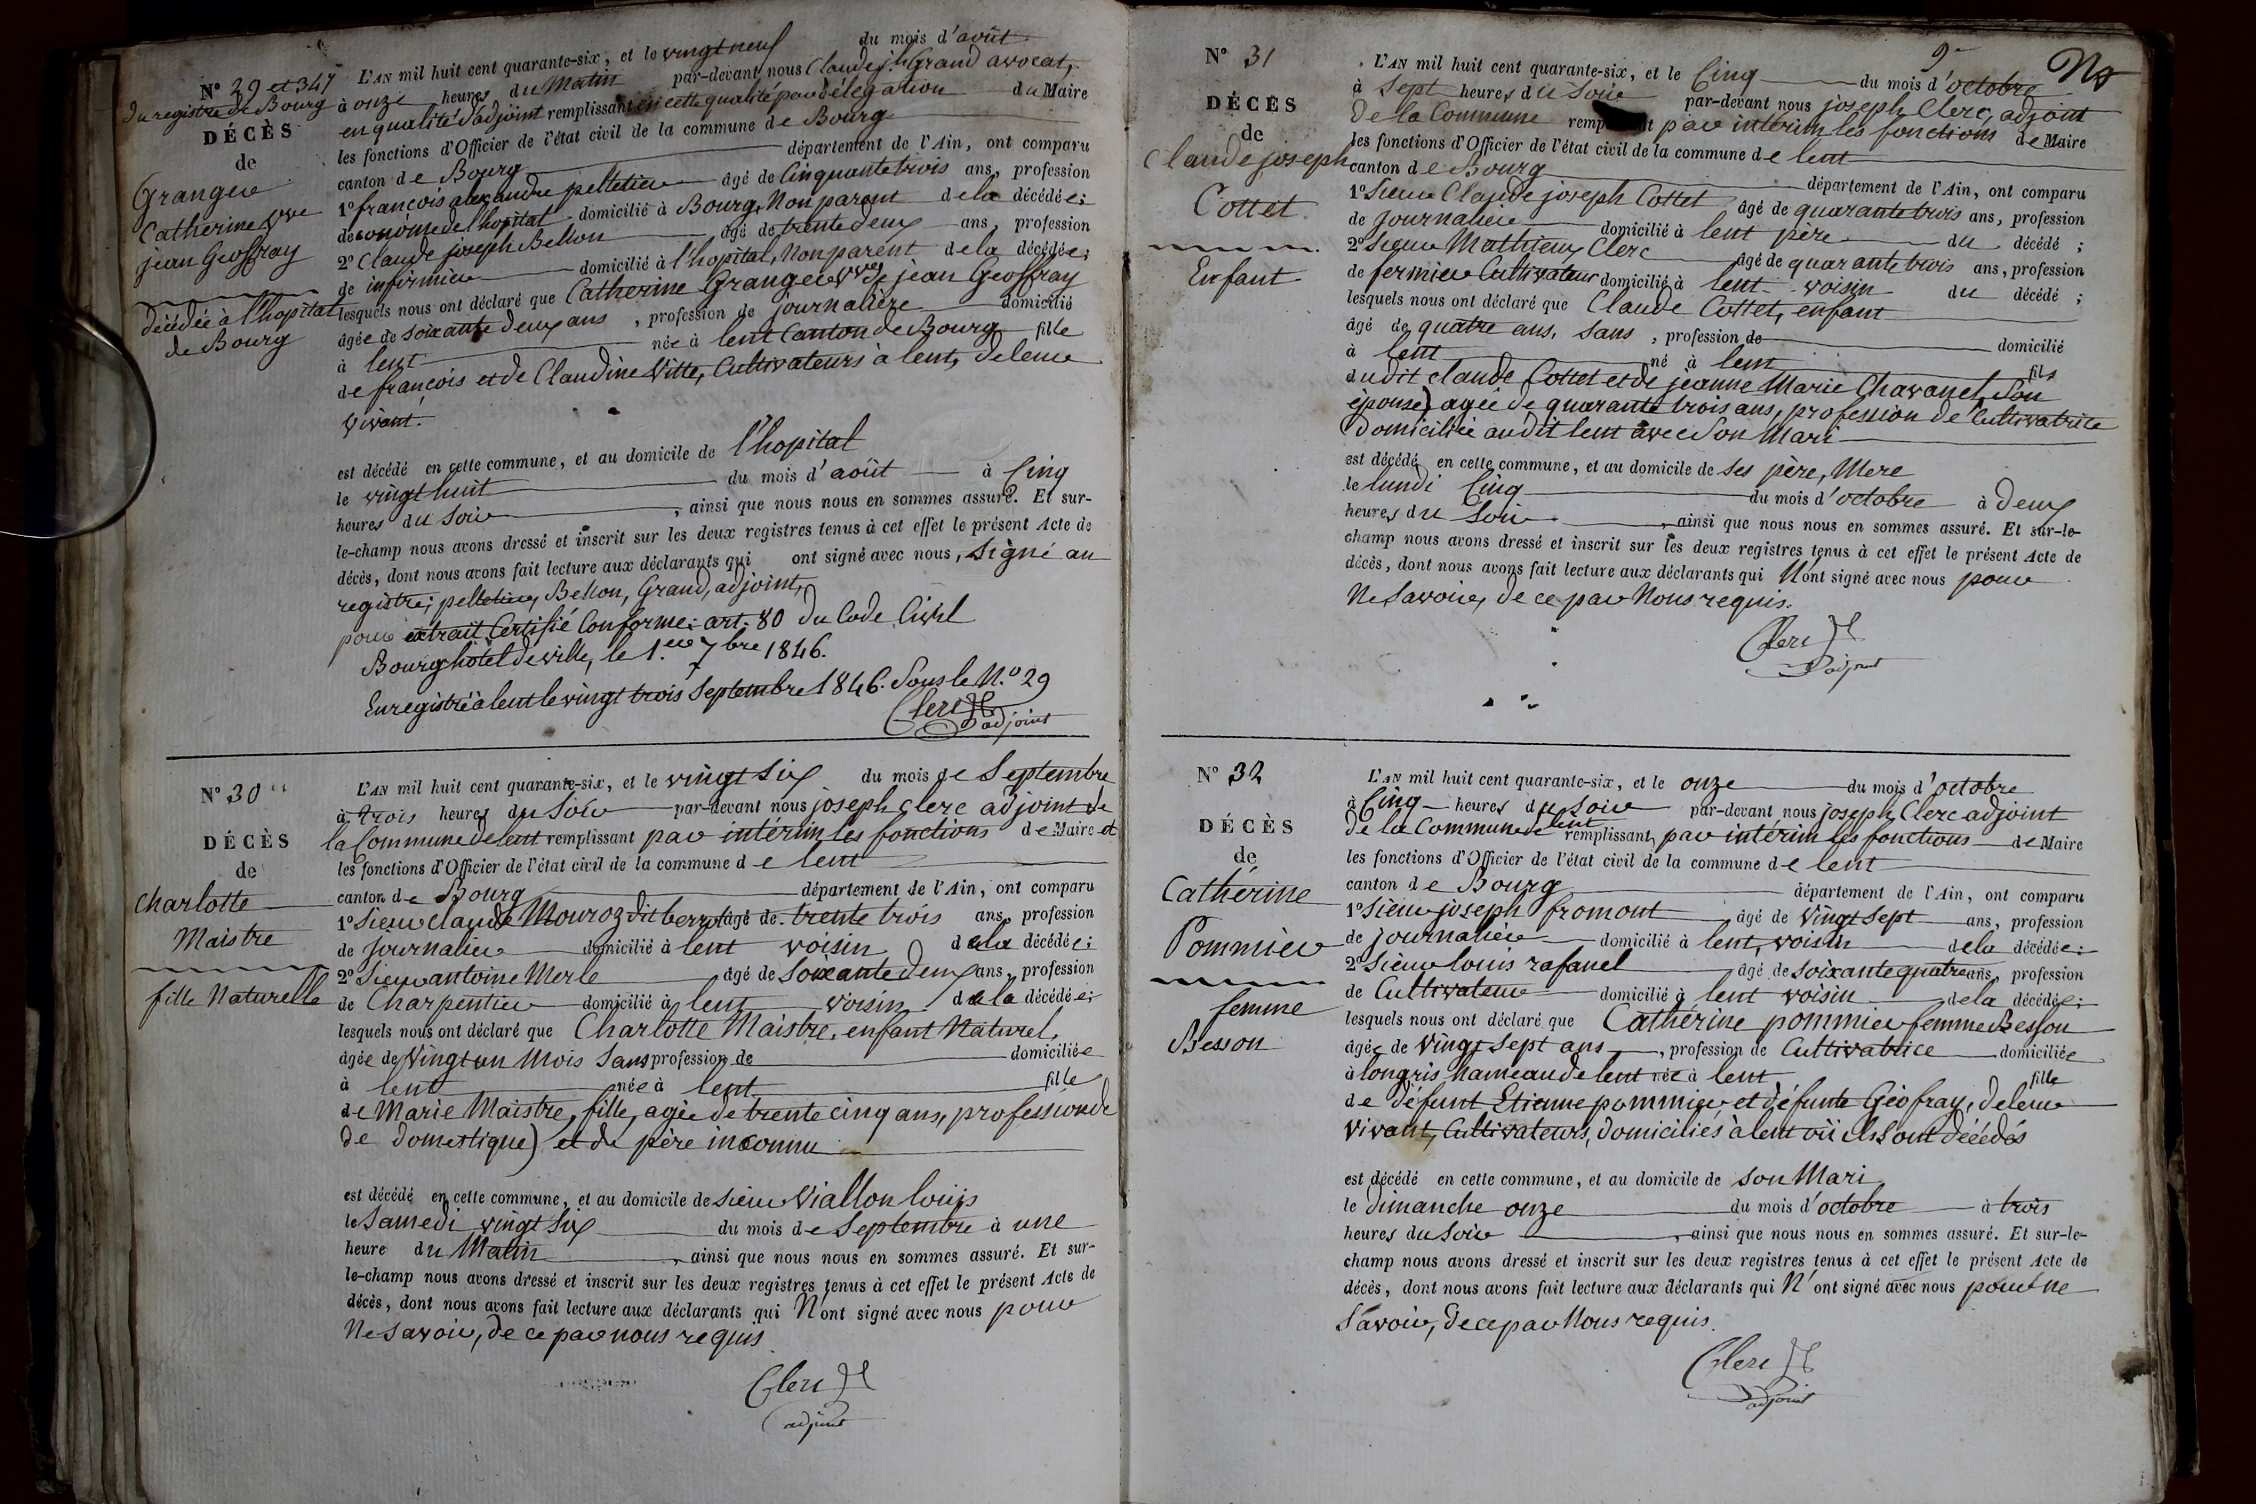 N° 29 et 347
du registre de Bourg
DÉCÈS
de
Granger
Catherine Vve
jean Geoffray
décédée à l'hopital
de Bourg
L'AN mil huit cent quarante-six, et le vingt neuf du mois d'août
à onze heures du Matin par-devant nous Claude jh Grand avocat,
en qualité d'adjoint remplissant en cette qualité par délégation du Maire
les fonctions d'Officier de l'état civil de la commune de Bourg
canton de Bourg département de l'Ain, ont comparu
1° françois alexandre pelletier âgé de Cinquante trois ans, profession
de économe de l'hopital domicilié à Bourg, Non parent de la décédée;
2° Claude joseph Bellon âgé de trente deux ans, profession
de infirmier domicilié à l'hopital, Non parent de la décédée;
lesquels nous ont déclaré que Catherine Granger Vve de jean Geoffray
âgée de soixante deux ans, profession de journalière domicilié
à lent née à lent Canton de Bourg fille
de françois et de Claudine Vitte, Cultivateurs à lent, de leur
vivant.
est décédé en cette commune, et au domicile de l'hopital
le vingt huit du mois d'août à Cinq
heures du Soir, ainsi que nous nous en sommes assuré. Et sur-
le-champ nous avons dressé et inscrit sur les deux registres tenus à cet effet le présent Acte de
décès, dont nous avons fait lecture aux déclarants qui ont signé avec nous, Signé au
registre; pelletier, Bellon, Grand, adjoint,
pour extrait Certifié Conforme: art. 80 du Code Civil
Bourg hôtel de ville, le 1.er 7bre 1846.
Enregistré à lent le vingt trois Septembre 1846. Sous le N.° 29
Clerc
adjoint
N° 30
DÉCÈS
de
Charlotte
Maistre
fille Naturelle
L'AN mil huit cent quarante-six, et le vingt Six du mois de Septembre
à trois heures du Soir par-devant nous joseph Clerc adjoint de
la Commune de lent remplissant par intérim les fonctions de Maire et
les fonctions d'Officier de l'état civil de la commune de lent
canton de Bourg département de l'Ain, ont comparu
1° Sieur Claude Mouroz dit berrot âgé de trente trois ans, profession
de journalier domicilié à lent voisin de la décédée;
2° Sieur antoine Merle âgé de Soixante deux ans, profession
de Charpentier domicilié à lent voisin de la décédée;
lesquels nous ont déclaré que Charlotte Maistre, enfant Naturel,
âgée de Vingt un Mois Sans profession de domiciliée
à lent née à lent fille
de Marie Maistre, fille, agée de trente cinq ans, profession de
de domestique) et de père inconnu
est décédé en cette commune, et au domicile de Sieur Viallon louis
le Samedi vingt Six du mois de Septembre à une
heure du Matin, ainsi que nous nous en sommes assuré. Et sur-
le-champ nous avons dressé et inscrit sur les deux registres tenus à cet effet le présent Acte de
décès, dont nous avons fait lecture aux déclarants qui N'ont signé avec nous pour
Ne Savoir, de ce par nous requis
Clerc
adjoint
N° 31
DÉCÈS
de
Claude joseph
Cottet
Enfant
9
L'AN mil huit cent quarante-six, et le Cinq du mois d'octobre
à Sept heures du Soir par-devant nous joseph Clerc, adjoint
de la Commune remplissant par intérim les fonctions de Maire
les fonctions d'Officier de l'état civil de la commune de lent
canton de Bourg département de l'Ain, ont comparu
1° Sieur Claude joseph Cottet âgé de quarante trois ans, profession
de journalier domicilié à lent père du décédé;
2° Sieur Mathieu Clerc âgé de quarante trois ans, profession
de fermier Cultivateur domicilié à lent voisin du décédé;
lesquels nous ont déclaré que Claude Cottet, enfant
âgé de quatre ans, sans, profession de domicilié
à lent né à lent fils
dudit claude Cottet et de jeanne Marie Chavanel, Son
épouse) agée de quarante trois ans, profession de Cultivatrice
domiciliée audit lent avec Son Mari
est décédé en cette commune, et au domicile de ses père, Mere
le lundi Cinq du mois d'octobre à deux
heures du Soir, ainsi que nous nous en sommes assuré. Et sur-le-
champ nous avons dressé et inscrit sur les deux registres tenus à cet effet le présent Acte de
décès, dont nous avons fait lecture aux déclarants qui N'ont signé avec nous pour
Ne Savoir, de ce par Nous requis.
Clerc
adjoint
N° 32
DÉCÈS
de
Catherine
Pommier
femme
Besson
L'AN mil huit cent quarante-six, et le onze du mois d'octobre
à Cinq heures du Soir par-devant nous joseph Clerc adjoint
de la Commune de lent remplissant par intérim les fonctions de Maire
les fonctions d'Officier de l'état civil de la commune de lent
canton de Bourg département de l'Ain, ont comparu
1° Sieur joseph fromont âgé de Vingt Sept ans, profession
de journalier domicilié à lent, voisin de la décédée;
2° Sieur louis rafanel âgé de soixante quatre ans, profession
de Cultivateur domicilié à lent voisin de la décédée;
lesquels nous ont déclaré que Cathérine pommier femme Besson
âgée de Vingt Sept ans, profession de Cultivatrice domiciliée
à longris hameau de lent née à lent fille
de défunt Etienne pommier et défunte Géofray, de leur
vivant, Cultivateurs, domiciliés à lent où ils sont décédés
est décédé en cette commune, et au domicile de son Mari
le dimanche onze du mois d'octobre à trois
heures du Soir, ainsi que nous nous en sommes assuré. Et sur-le-
champ nous avons dressé et inscrit sur les deux registres tenus à cet effet le présent Acte de
décès, dont nous avons fait lecture aux déclarants qui N'ont signé avec nous pour ne
Savoir, de ce par Nous requis.
Clerc
adjoint